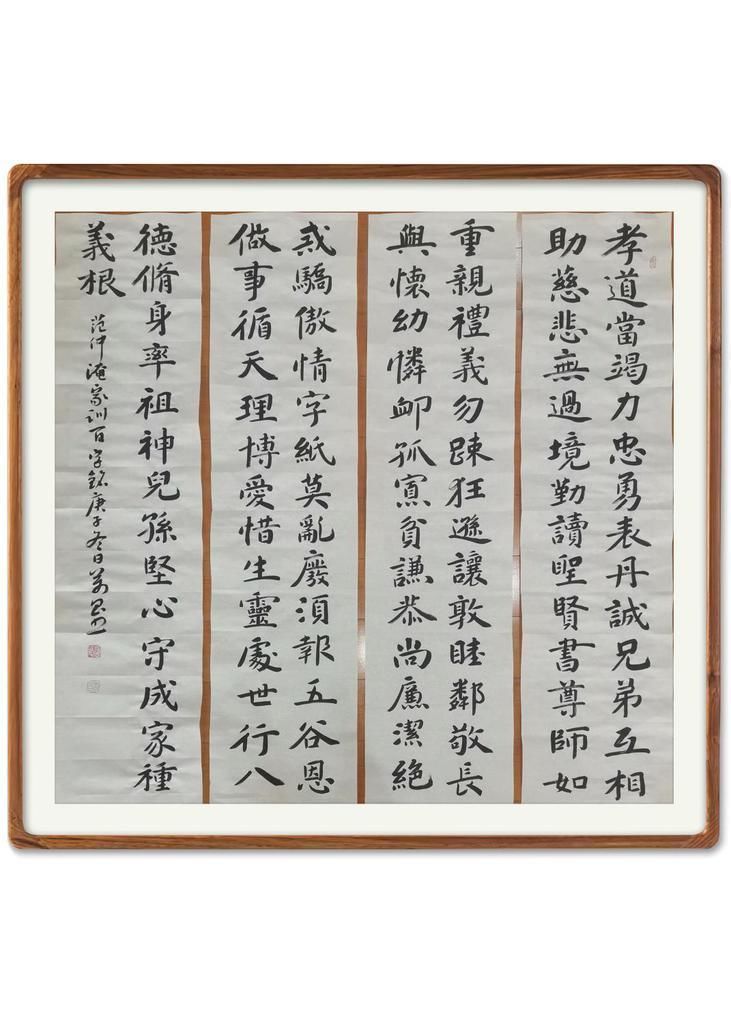 孝道當竭力忠勇表丹誠兄弟互相
助慈悲無過境勤讀聖賢書尊師如
重親禮義勿踈狂遜讓敦睦鄰敬長
與懷幼憐卹孤寡貧謙恭尚廉潔絕
戒驕傲情字紙莫亂廢須報五谷恩
做事循天理博愛惜生靈處世行八
德脩身率祖神兒孫堅心守成家種
義根
范仲淹家训百字銘庚子冬日